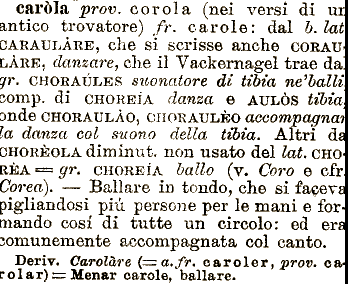 caròla prov. corola (nei versi di un
antico trovatore) fr. carole: dal b. lat.
CARAULÀRE, che si scrisse anche CORAU-
LÀRE, danzare, che il Vackernagel trae dal
gr. CHORAÚLES suonatore di tibia ne'balli,
comp. di CHOREÍA danza e AULÒS tibia,
onde CHORAULÁO, CHORAULÈO accompagnar
la danza col suono della tibia. Altri da
CHORÈOLA diminut. non usato del lat. CHO-
RÈA = gr. CHOREÍA ballo (v. Coro e cfr.
Corea). — Ballare in tondo, che si faceva
pigliandosi piú persone per le mani e for-
mando cosí di tutte un circolo: ed era
comunemente accompagnata col canto.
Deriv. Carolàre (= a. fr. caroler, prov. ca-
rolar) = Menar carole, ballare.